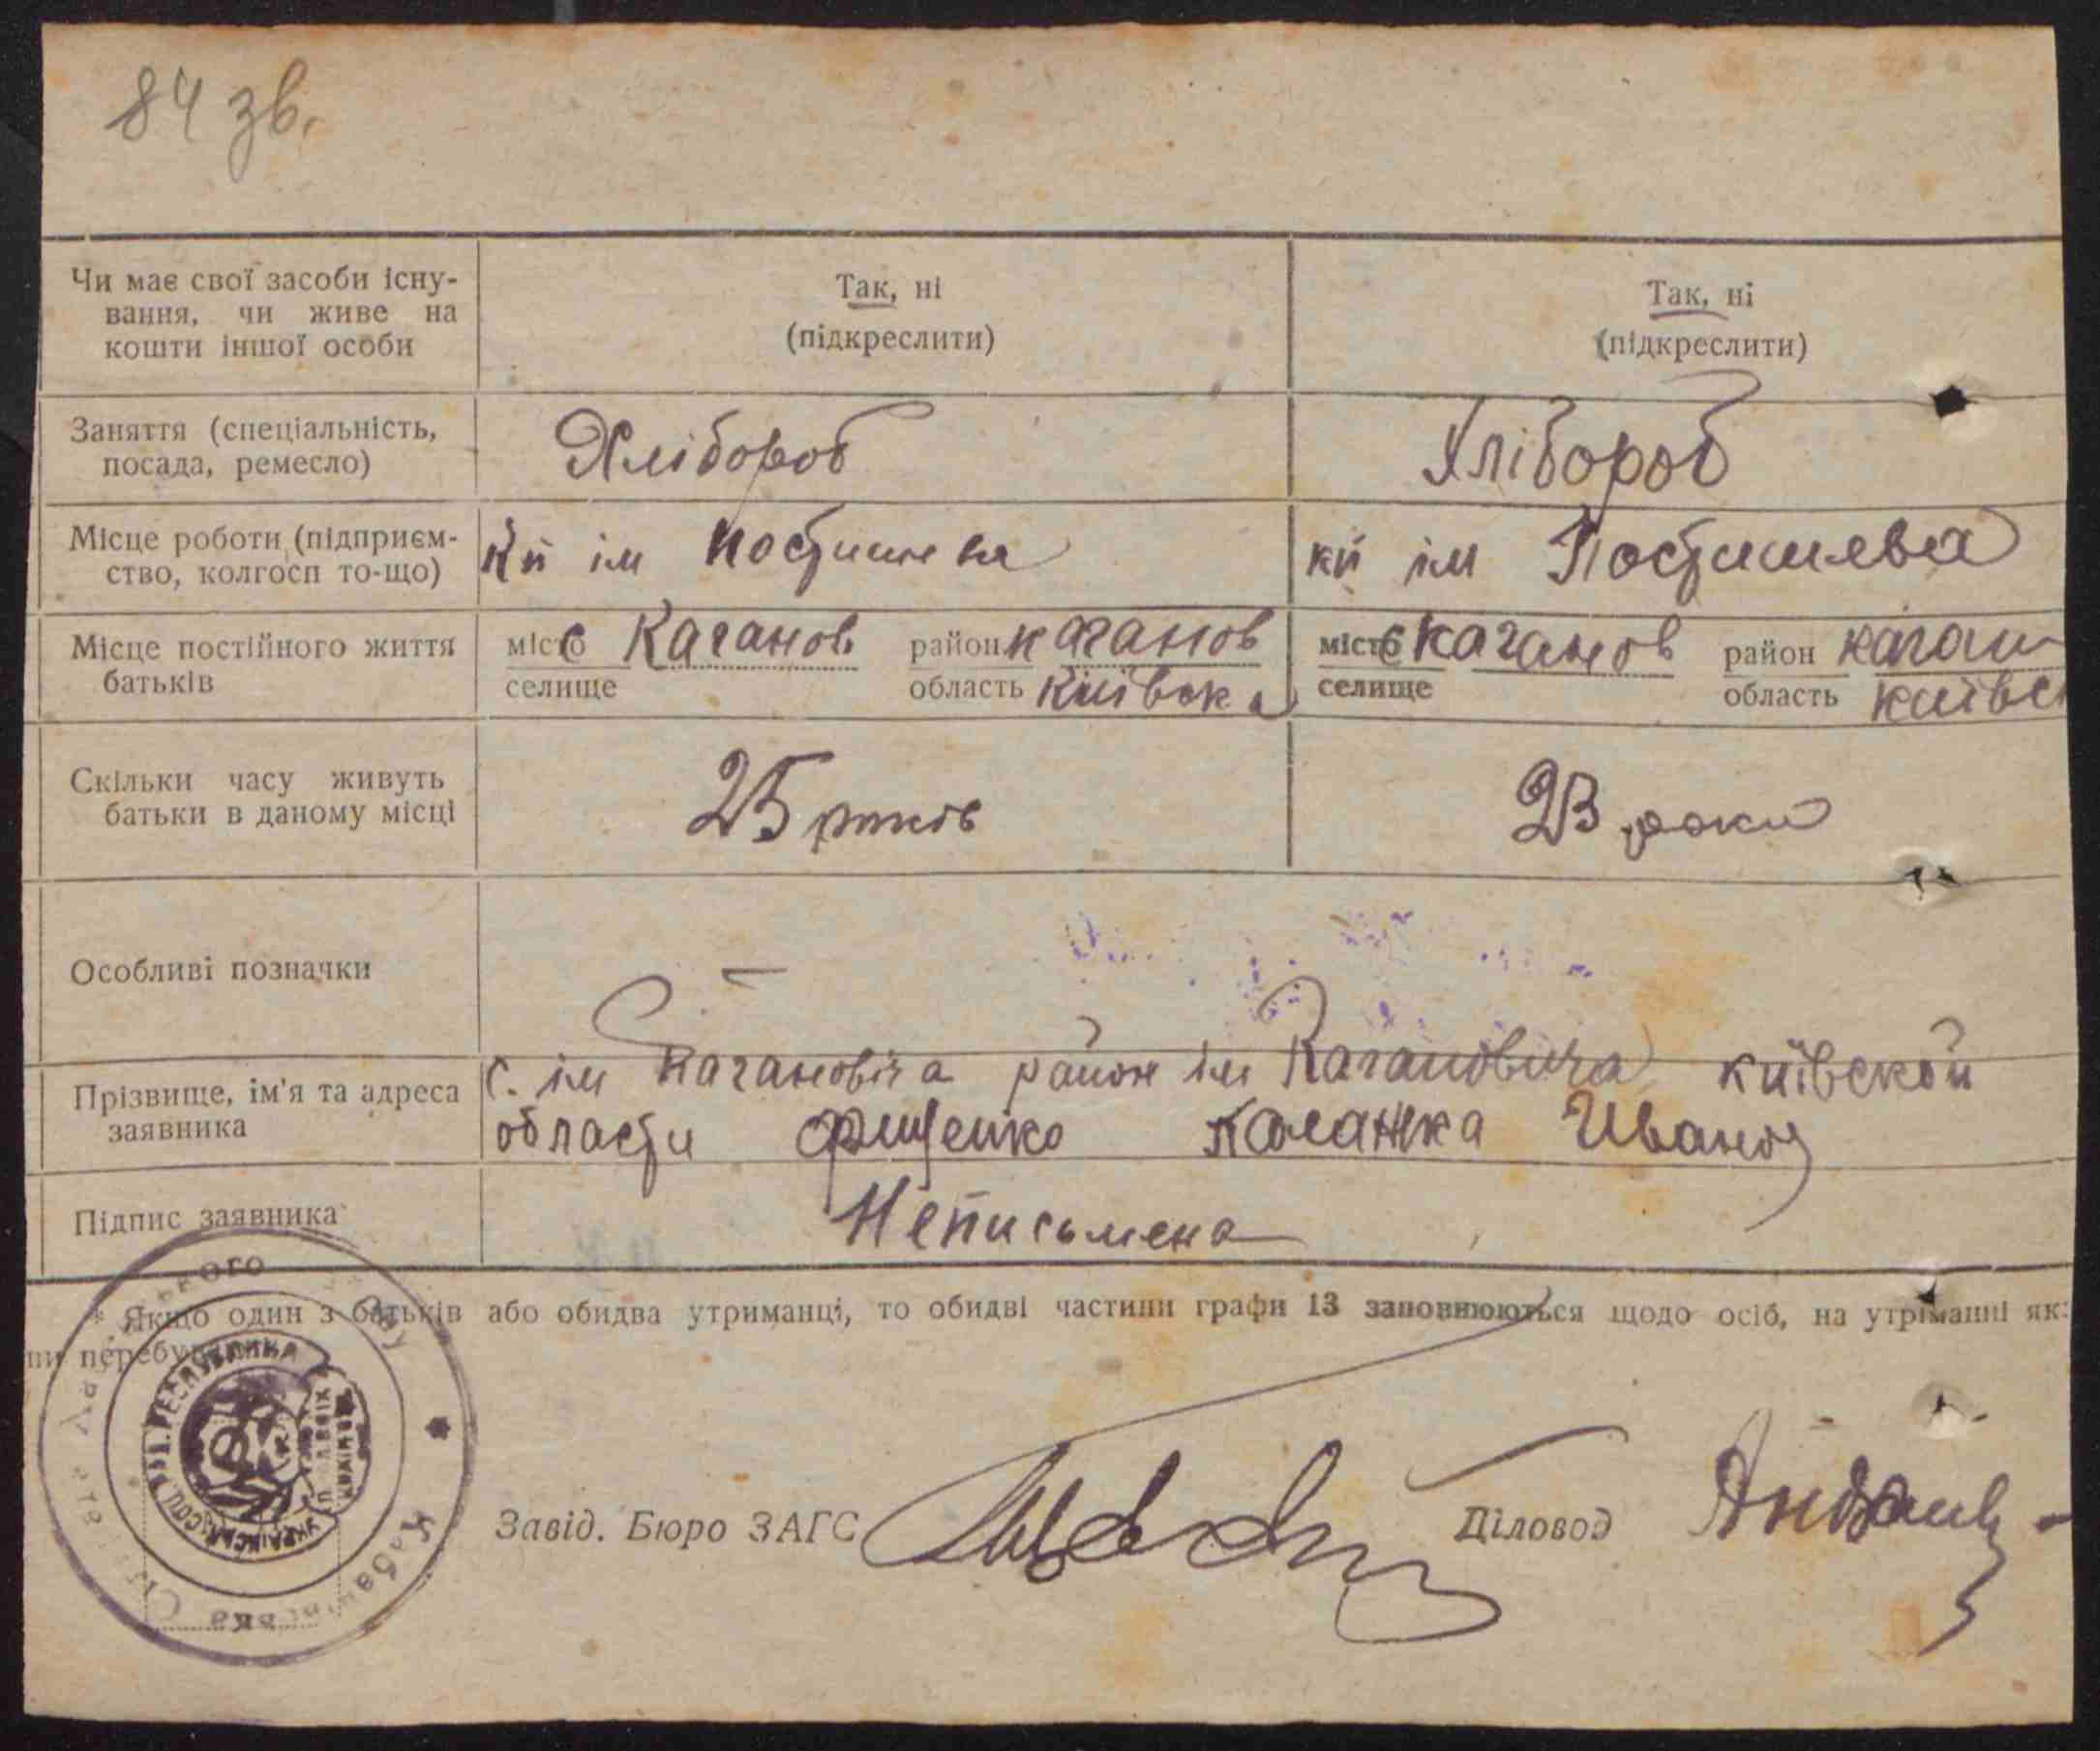 84 зв.
Чи має свої засоби існу-
вання, чи живе на
кошти іншої особи
Так, ні
(підкреслити)
Так, ні
(підкреслити)
Заняття (спеціальність,
посада, ремесло)
Хлібороб
Хлібороб
Місце роботи (підприєм-
ство, колгосп то-що)
кп ім Постишева
кп ім Постишева
Місце постійного життя
батьків
місто с Каганов район Каганов
селище область Київска
місто с Каганов район Каган
селище область Київск
Скільки часу живуть
батьки в даному місці
25 років
23 роки
Особливі позначки
Прізвище, ім'я та адреса
заявника
с. ім Кагановіча район ім Кагановича київской
области Фищенко Иванов
Підпис заявника
Неписьмена
* Якщо один з батьків або обидва утриманці, то обидві частини графи 13 заповнюються щодо осіб, на утріманні як
пи перебув
УКРАЇНСЬКА СОЦ. РАД. РЕСПУБЛІКА
Завід. Бюро ЗАГС
Діловод